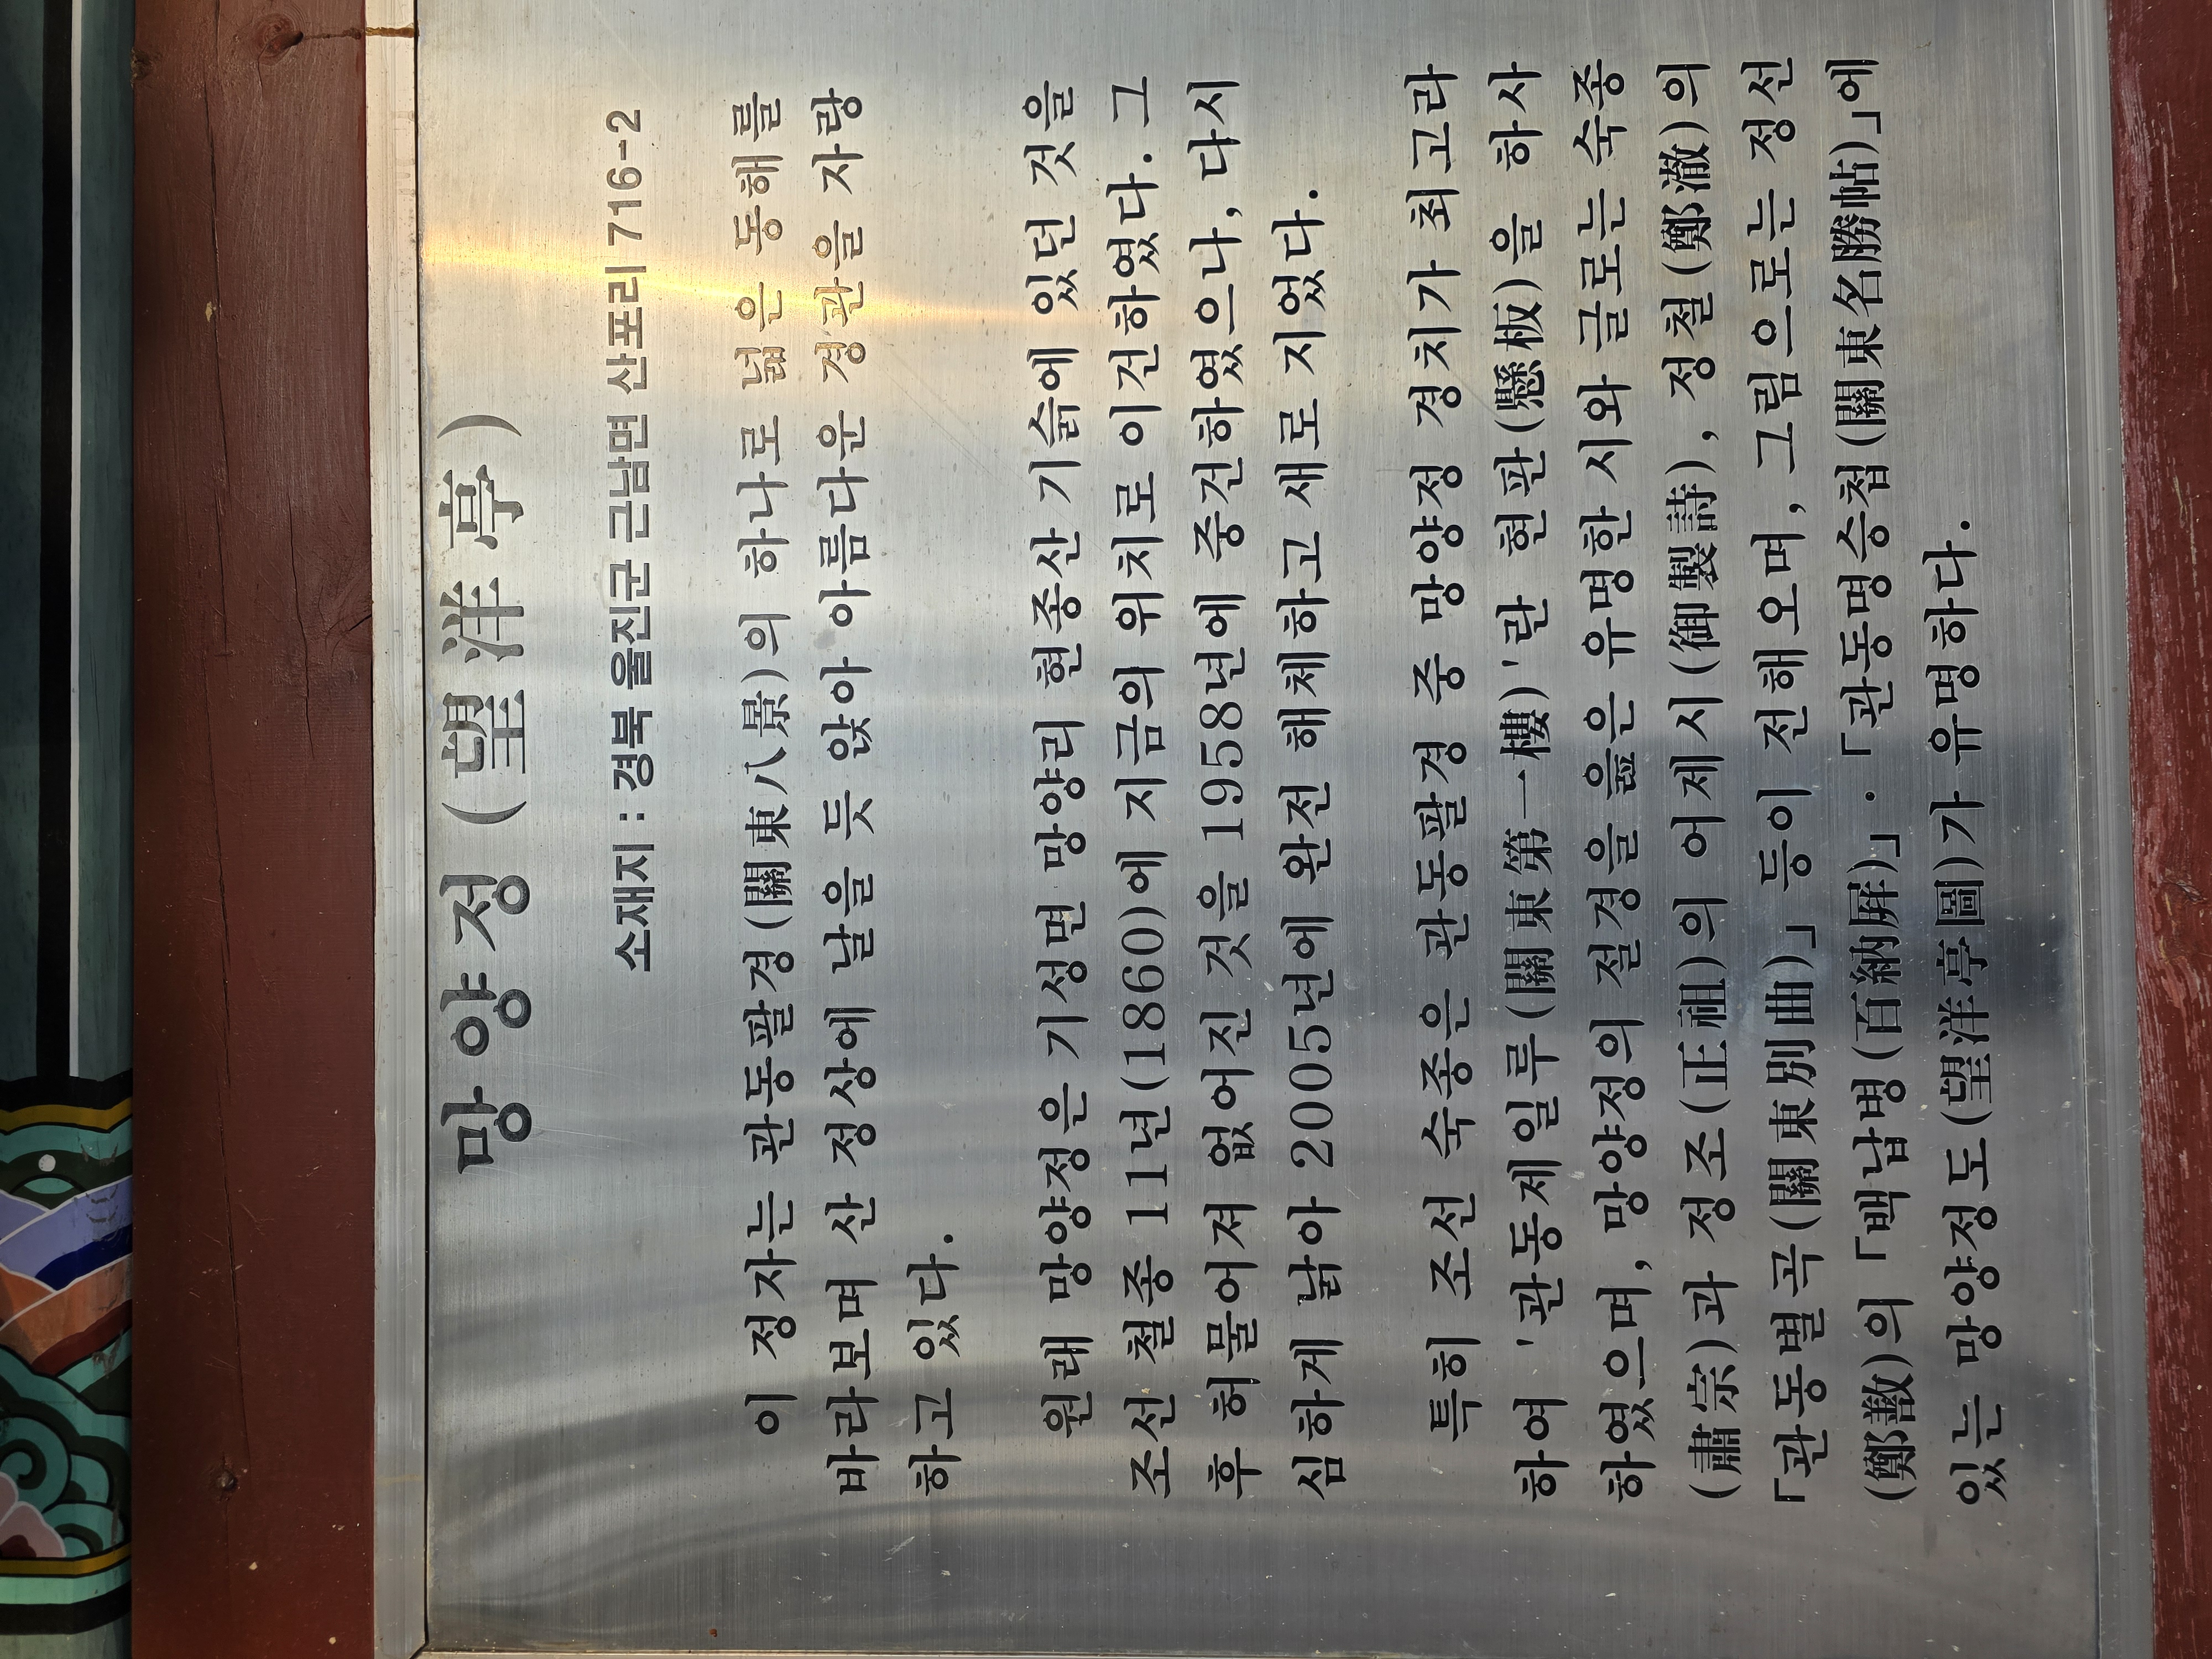 망양정(望洋亭)
소재지 : 경북 울진군 근남면 산포리 716-2
이 정자는 관동팔경(關東八景)의 하나로 넓은 동해를
바라보며 산 정상에 날을 듯 앉아 아름다운 경관을 자랑
하고 있다.
원래 망양정은 기성면 망양리 현종산 기슭에 있던 것을
조선 철종 11년(1860)에 지금의 위치로 이건하였다. 그
후 허물어져 없어진 것을 1958년에 중건하였으나, 다시
심하게 낡아 2005년에 완전 해체하고 새로 지었다.
특히 조선 숙종은 관동팔경 중 망양정 경치가 최고라
하여 '관동제일루(關東第一樓)'란 현판(懸板)을 하사
하였으며, 망양정의 절경을 읊은 유명한 시와 글로는 숙종
(肅宗)과 정조(正祖)의 어제시(御製詩), 정철(鄭澈)의
「관동별곡(關東別曲)」 등이 전해오며, 그림으로는 정선
(鄭敾)의 「백납병(百納屛)」·「관동명승첩(關東名勝帖)」에
있는 망양정도(望洋亭圖)가 유명하다.